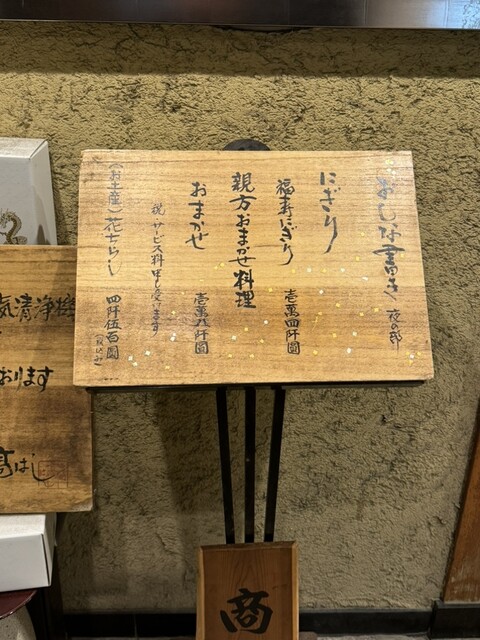 おしな書き 夜の部
にぎり
福寿にぎり 壱萬四阡圓
親方おまかせ料理
おまかせ 壱萬八阡圓
税・サービス料申し受けます
(お土産) 花ちらし 四阡伍百圓 (税込み)
気清浄機
おります
髙はし
商